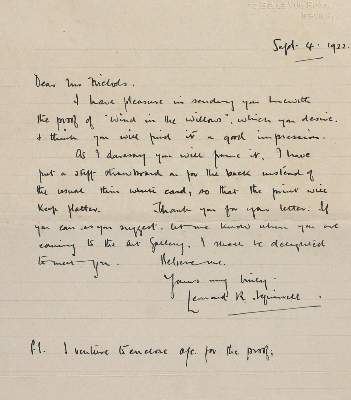 Sept. 4. 1922.
Dear Mrs Nichols.
I have pleasure in sending you herewith
the proof of "Wind in the Willows", which you desire.
I think you will find it a good impression.
As I daresay you will frame it, I have
put a stiff strawboard as for the back instead of
the usual thin white card, so that the print will
keep flatter. Thank you for your letter. If
you can, as you suggest, let me know when you are
coming to the Art Gallery, I shall be delighted
to meet you. Believe me.
Yours very truly.
Leonard R. Squirrell.
P.S. I venture to enclose a/c for the proof.